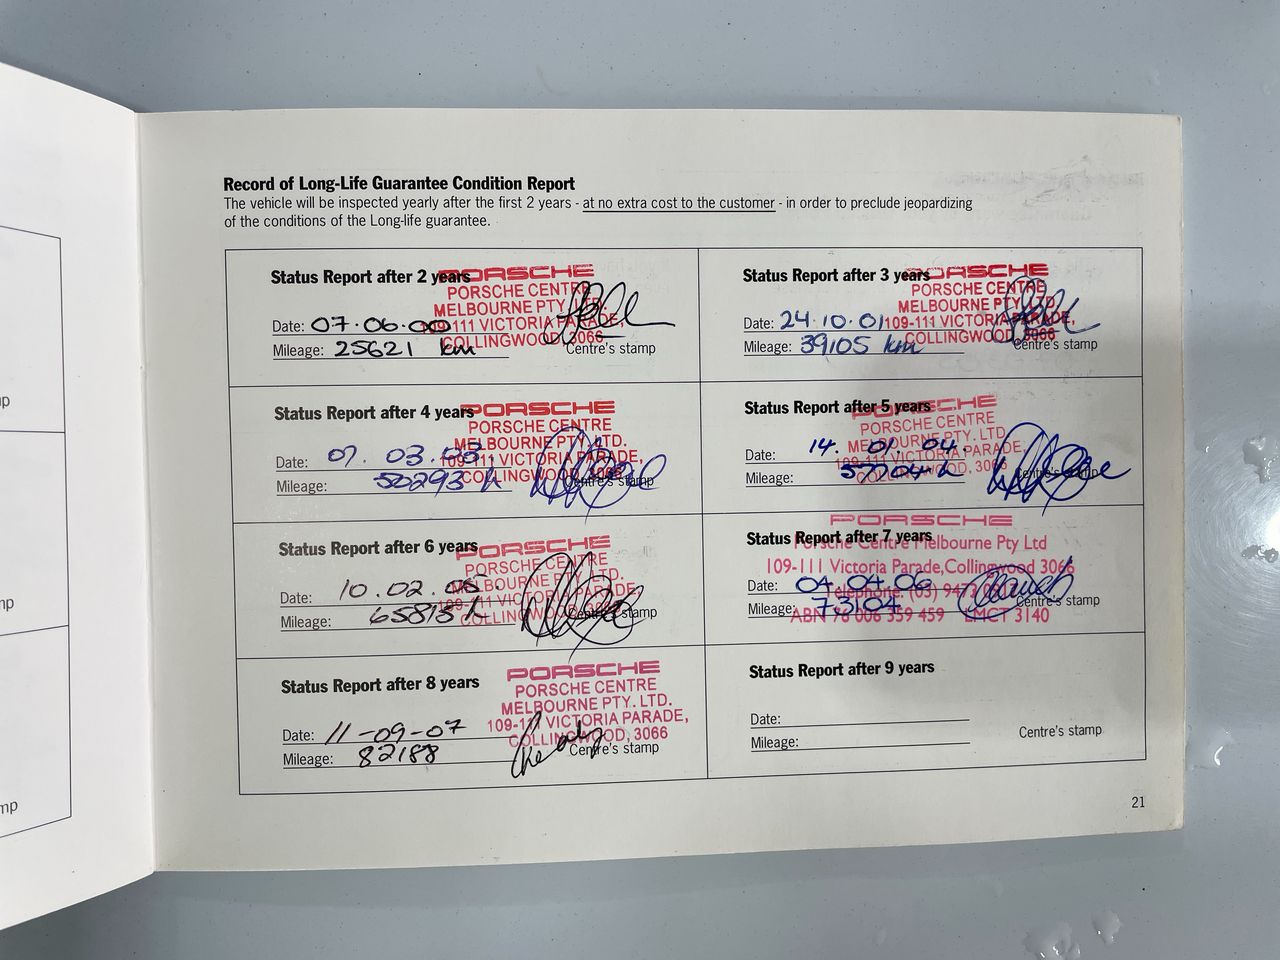 Record of Long-Life Guarantee Condition Report
The vehicle will be inspected yearly after the first 2 years - at no extra cost to the customer - in order to preclude jeopardizing
of the conditions of the Long-life guarantee.
Status Report after 2 years
PORSCHE
PORSCHE CENTRE
MELBOURNE PTY. LTD.
109-111 VICTORIA PARADE,
COLLINGWOOD, 3066
Date: 07.06.00
Mileage: 25621 km
Centre's stamp
Status Report after 3 years
PORSCHE
PORSCHE CENTRE
MELBOURNE PTY. LTD.
109-111 VICTORIA PARADE,
COLLINGWOOD, 3066
Date: 24.10.01
Mileage: 39105 km
Centre's stamp
Status Report after 4 years
PORSCHE
PORSCHE CENTRE
MELBOURNE PTY. LTD.
109-111 VICTORIA PARADE,
COLLINGWOOD, 3066
Date: 03.03
Mileage: 50293 k
Centre's stamp
Status Report after 5 years
PORSCHE
PORSCHE CENTRE
MELBOURNE PTY. LTD.
109-111 VICTORIA PARADE,
COLLINGWOOD, 3066
Date: 14. 01 04
Mileage: 57204 k
Centre's stamp
Status Report after 6 years
PORSCHE
PORSCHE CENTRE
MELBOURNE PTY. LTD.
109-111 VICTORIA PARADE,
COLLINGWOOD, 3066
Date: 10.02.05
Mileage: 65815 k
Centre's stamp
Status Report after 7 years
PORSCHE
Porsche Centre Melbourne Pty Ltd
109-111 Victoria Parade, Collingwood 3066
Telephone: (03)
ABN 78 006 359 459 LMCT 3140
Date: 04.04.06
Mileage: 73104
Centre's stamp
Status Report after 8 years
PORSCHE
PORSCHE CENTRE
MELBOURNE PTY. LTD.
109-111 VICTORIA PARADE,
COLLINGWOOD, 3066
Date: 11-09-07
Mileage: 82188
Centre's stamp
Status Report after 9 years
Date:
Mileage:
Centre's stamp
21